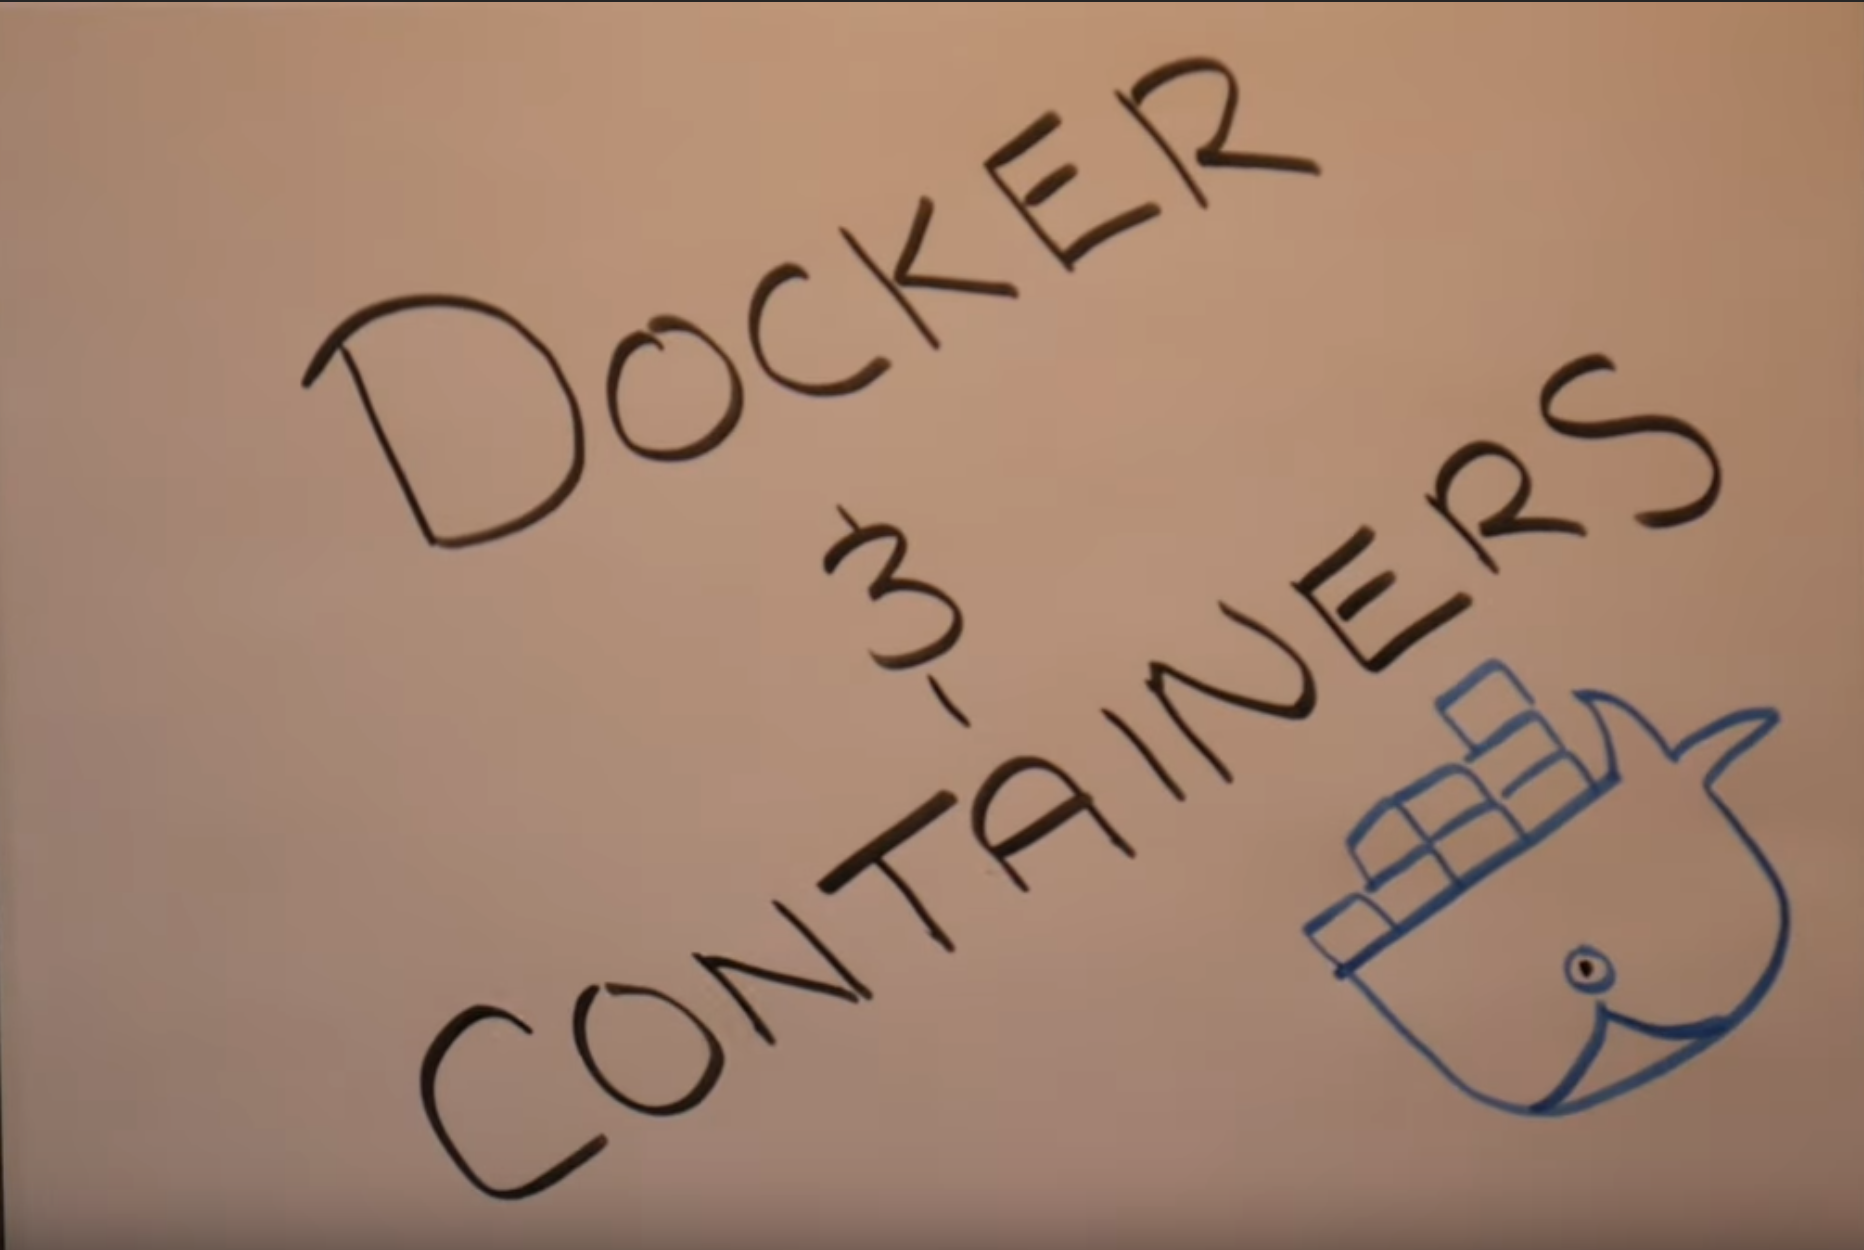 DOCKER
&
CONTAINERS